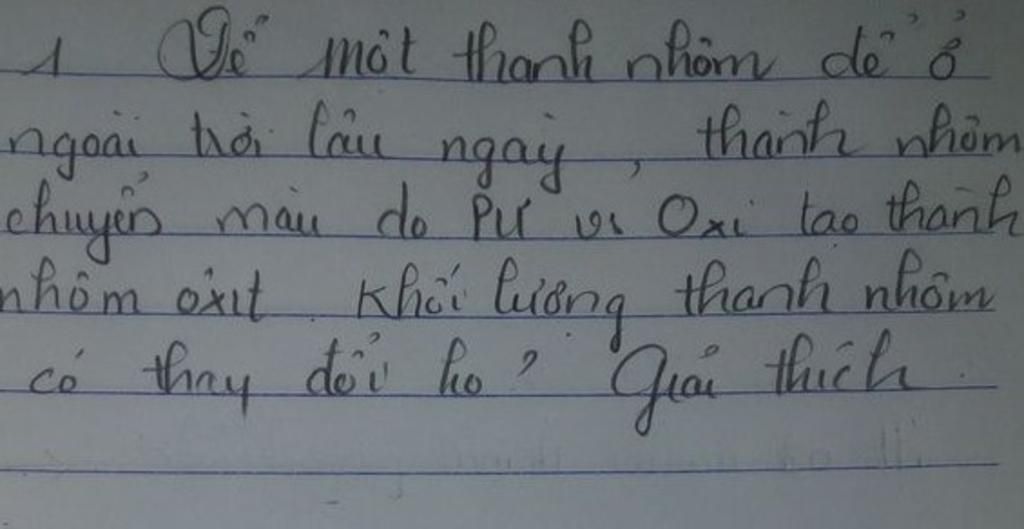 1 Để một thanh nhôm để ở
ngoài trời lâu ngày, thanh nhôm
chuyển màu do PƯ vs Oxi tạo thành
nhôm oxit. Khối lượng thanh nhôm
có thay đổi ko? Giải thích.